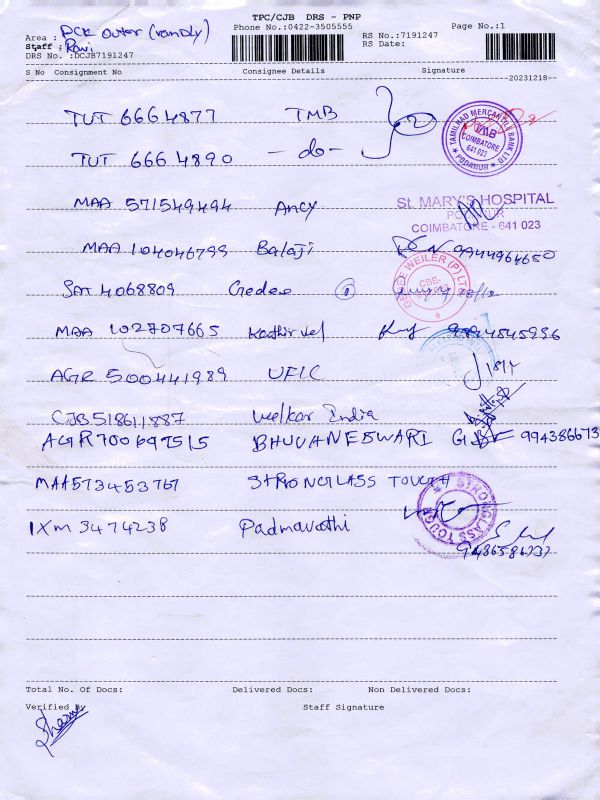 TPC/CJB DRS - PNP
Phone No.:0422-3505555
Page No.:1
RS No.:7191247
RS Date:
Area : PCK outer
Staff : Ravi
DRS No. :DCJB7191247
S No Consignment No Consignee Details Signature
20231218
TUT 6664877 TMB
TUT 6664890 -do-
TAMILNAD MERCANTILE BANK LTD
TMB
COIMBATORE
641 023
PODANUR
MAA 571549494 Ancy
St. MARY'S HOSPITAL
PODANUR
COIMBATORE - 641 023
MAA 104046799 Balaji 9944964650
SAT 4068809 Gedee
GEDEE WEILER (P) LTD
CBE-
MAA 102707665 Kathirvel
AGR 500441989 UFIC
CJB518611887 Veekar India
AGR700697515 BHUVANESWARI 994386673
MAA573453767 STRONGLASS TOUGH
STRONGLASS TOUGH
IXM 3474238 Padmavathi
Total No. Of Docs: Delivered Docs: Non Delivered Docs:
Verified By Staff Signature